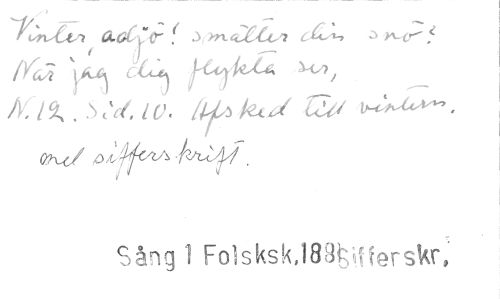 Vinter, adjö! smälter din snö?
När jag dig flykta ser,
N.12. Sid.10. Afsked till vintern.
mel sifferskrift.
Sång 1 Folsksk,188 Sifferskr,